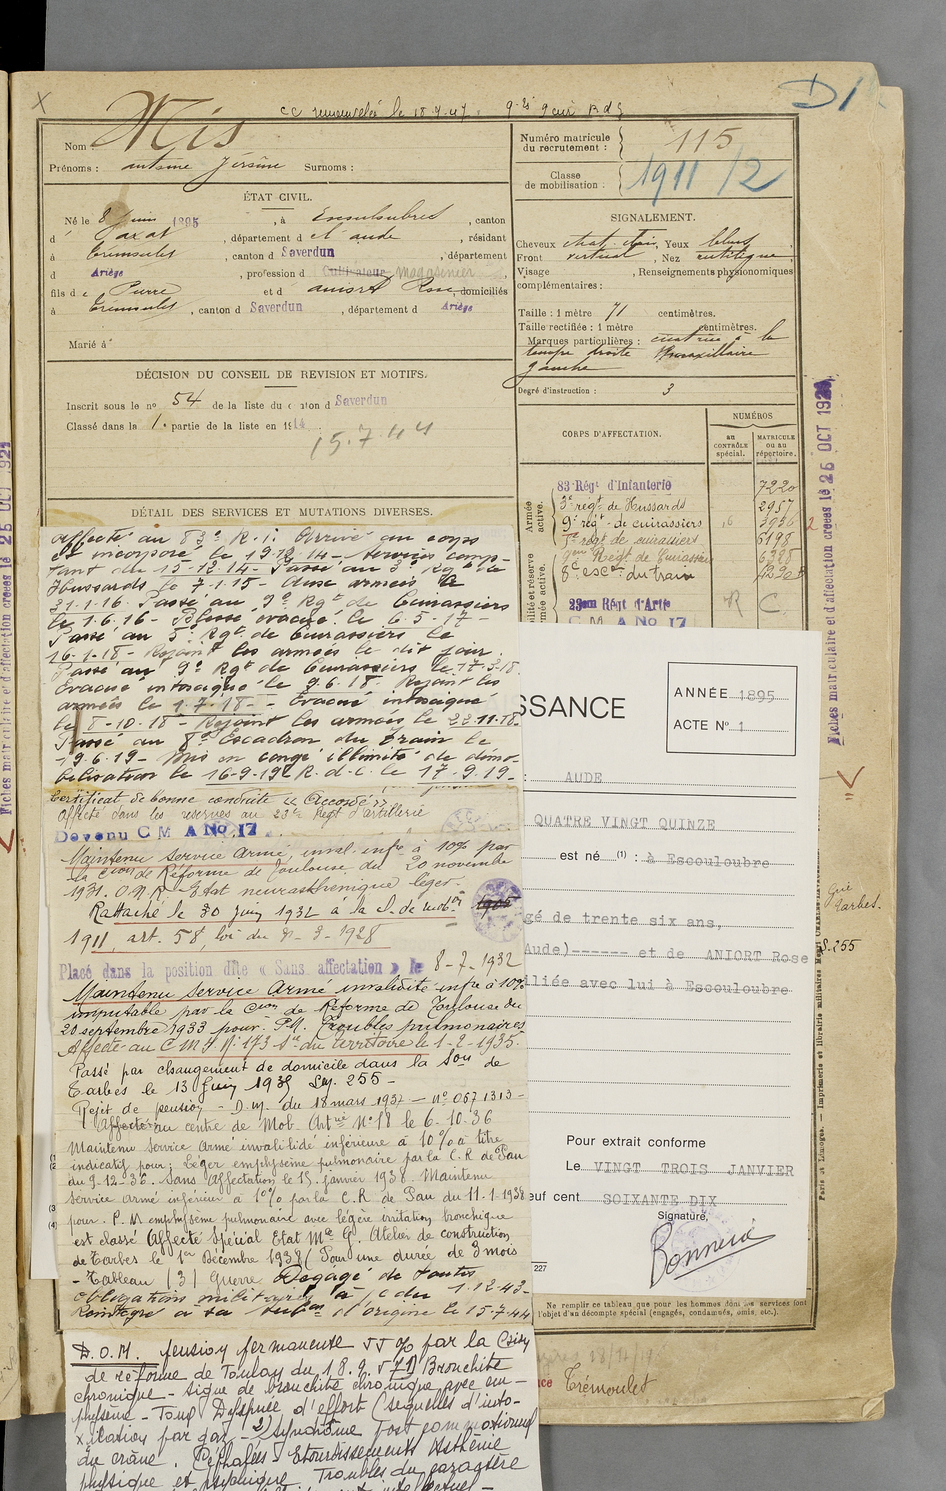 CC renouvelée le 18.9.47
D1
Nom Mis
Prénoms : antoine Jérsine Surnoms :
Numéro matricule du recrutement : 115
Classe de mobilisation : 1911/2
ÉTAT CIVIL.
Né le 8 juin 1895, à Escouloubre, canton
d' Axat, département d el aude, résidant
à Trémoulet, canton d Saverdun, département
d Ariège, profession d Cultivateur magasinier,
fils de Pierre et d aniort Rose, domiciliés
à Trémoulet, canton d Saverdun, département d Ariège
Marié à
SIGNALEMENT.
Cheveux chat. clair, Yeux bleus
Front vertical, Nez rectiligne
Visage , Renseignements physionomiques
complémentaires :
Taille : 1 mètre 71 centimètres.
Taille rectifiée : 1 mètre centimètres.
Marques particulières : cicatrice à la
tempe droite maxillaire
gauche
Degré d'instruction : 3
DÉCISION DU CONSEIL DE REVISION ET MOTIFS.
Inscrit sous le no 54 de la liste du canton d Saverdun
Classé dans la 1. partie de la liste en 1914.
15.7.44
CORPS D'AFFECTATION.
NUMÉROS
au CONTRÔLE spécial.
MATRICULE ou au répertoire.
Armée active.
83 Régt d'Infanterie 7220
3e régt de Hussards 2957
9e régt de cuirassiers 3936
5e régt de cuirassiers 6198
9em Régt de Cuirassiers 6385
8e escon du train
23em Régt d'Artie R C.
C M A No 17
DÉTAIL DES SERVICES ET MUTATIONS DIVERSES.
affecté au 83e R.I. Arrivé au corps
et incorporé le 19.12.14 - services comp-
tant du 15-12-14 - Passé au 3e Rgt de
Hussards le 7-1-15 - aux armées le
31-1-16. Passé au 9e Rgt de Cuirassiers
le 1.6.16 - Blessé évacué le 6.5.17 -
Passé au 5e Rgt de Cuirassiers le
16-1-18 - Rejoint les armées le dit jour.
Passé au 9e Rgt de Cuirassiers le 17-3-18
Évacué intoxiqué le 9.6.18. Rejoint les
armées le 1.7.18 - Évacué intoxiqué
le 8-10-18 - Rejoint les armées le 22-11-18.
Passé au 8e Escadron du train le
19.6.19 - Mis en congé illimité de démo-
bilisation le 16-9-19 R.d.C. le 17.9.19 -
Certificat de bonne conduite « Accordé »
Affecté dans les réserves au 23e Régt d'artillerie
Devenu C M A No 17
Maintenu Service Armé, inval. infre à 10% par
la Cion de Réforme de Toulouse du 20 novembre
1931. O.N.R. - Etat neurasthénique léger.
Rattaché le 30 juin 1932 à la S. de mobon 1905
1911, art. 58, loi du 31-3-1928
Placé dans la position dite « Sans affectation » le 8-7-1932
Maintenu Service Armé invalidité infre à 10%
imputable par la Cion de Réforme de Toulouse du
20 septembre 1933 pour : P.M. Troubles pulmonaires
Affecté au C.M.I. No 173 Son du territoire le 1-2-1935.
Passé par changement de domicile dans la Son de
Tarbes le 13 Juin 1935 Lég. 255 -
Rejet de pension - D.M. du 18 mars 1932 - No 067 1313 -
Affecté au centre de Mob. Artrie No 18 le 6-10-36
Maintenu Service Armé invalidité inférieure à 10% à titre
indicatif pour : Léger emphysème pulmonaire par la C.R de Pau
du 9-12-36. Sans Affectation le 15 janvier 1938. Maintenu
Service armé inférieur à 10% par la C.R. de Pau du 11-1-1938
pour : P.M emphysème pulmonaire avec légère irritation bronchique
est classé Affecté Spécial Etat Mre G. Atelier de construction
de Tarbes le 1er Décembre 1938 (Pour une durée de 3 mois
- Tableau (3) Guerre Dégagé de toutes
obligations militaires à c. du 1-12-43 -
Réintégré à sa subon d'origine le 15-7-44
D.O.M. Pension permanente 55% par la Cion
de réforme de Toulon du 18.9.571) Bronchite
chronique - signe de bronchite chronique avec em-
physème - Toux Dyspnée d'effort (séquelles d'into-
xication par gaz - 2) Syndrome Post commotionnel
du crâne. Céphalées - Etourdissements Asthénie
physique et psychique. Troubles du caractère
SSANCE
ANNÉE 1895
ACTE No 1
: AUDE
QUATRE VINGT QUINZE
est né (1) : à Escouloubre
gé de trente six ans,
Aude)------ et de ANIORT Rose
iliée avec lui à Escouloubre
Pour extrait conforme
Le VINGT TROIS JANVIER
euf cent SOIXANTE DIX
Signature,
Bonnerie
227
Ne remplir ce tableau que pour les hommes dont les services font
l'objet d'un décompte spécial (engagés, condamnés, omis, etc.).
Trémoulet
Fiches matriculaire et d'affectation créées le 26 OCT 192
Tarbes.
S.255
Paris et Limoges. — Imprimerie et librairie militaires